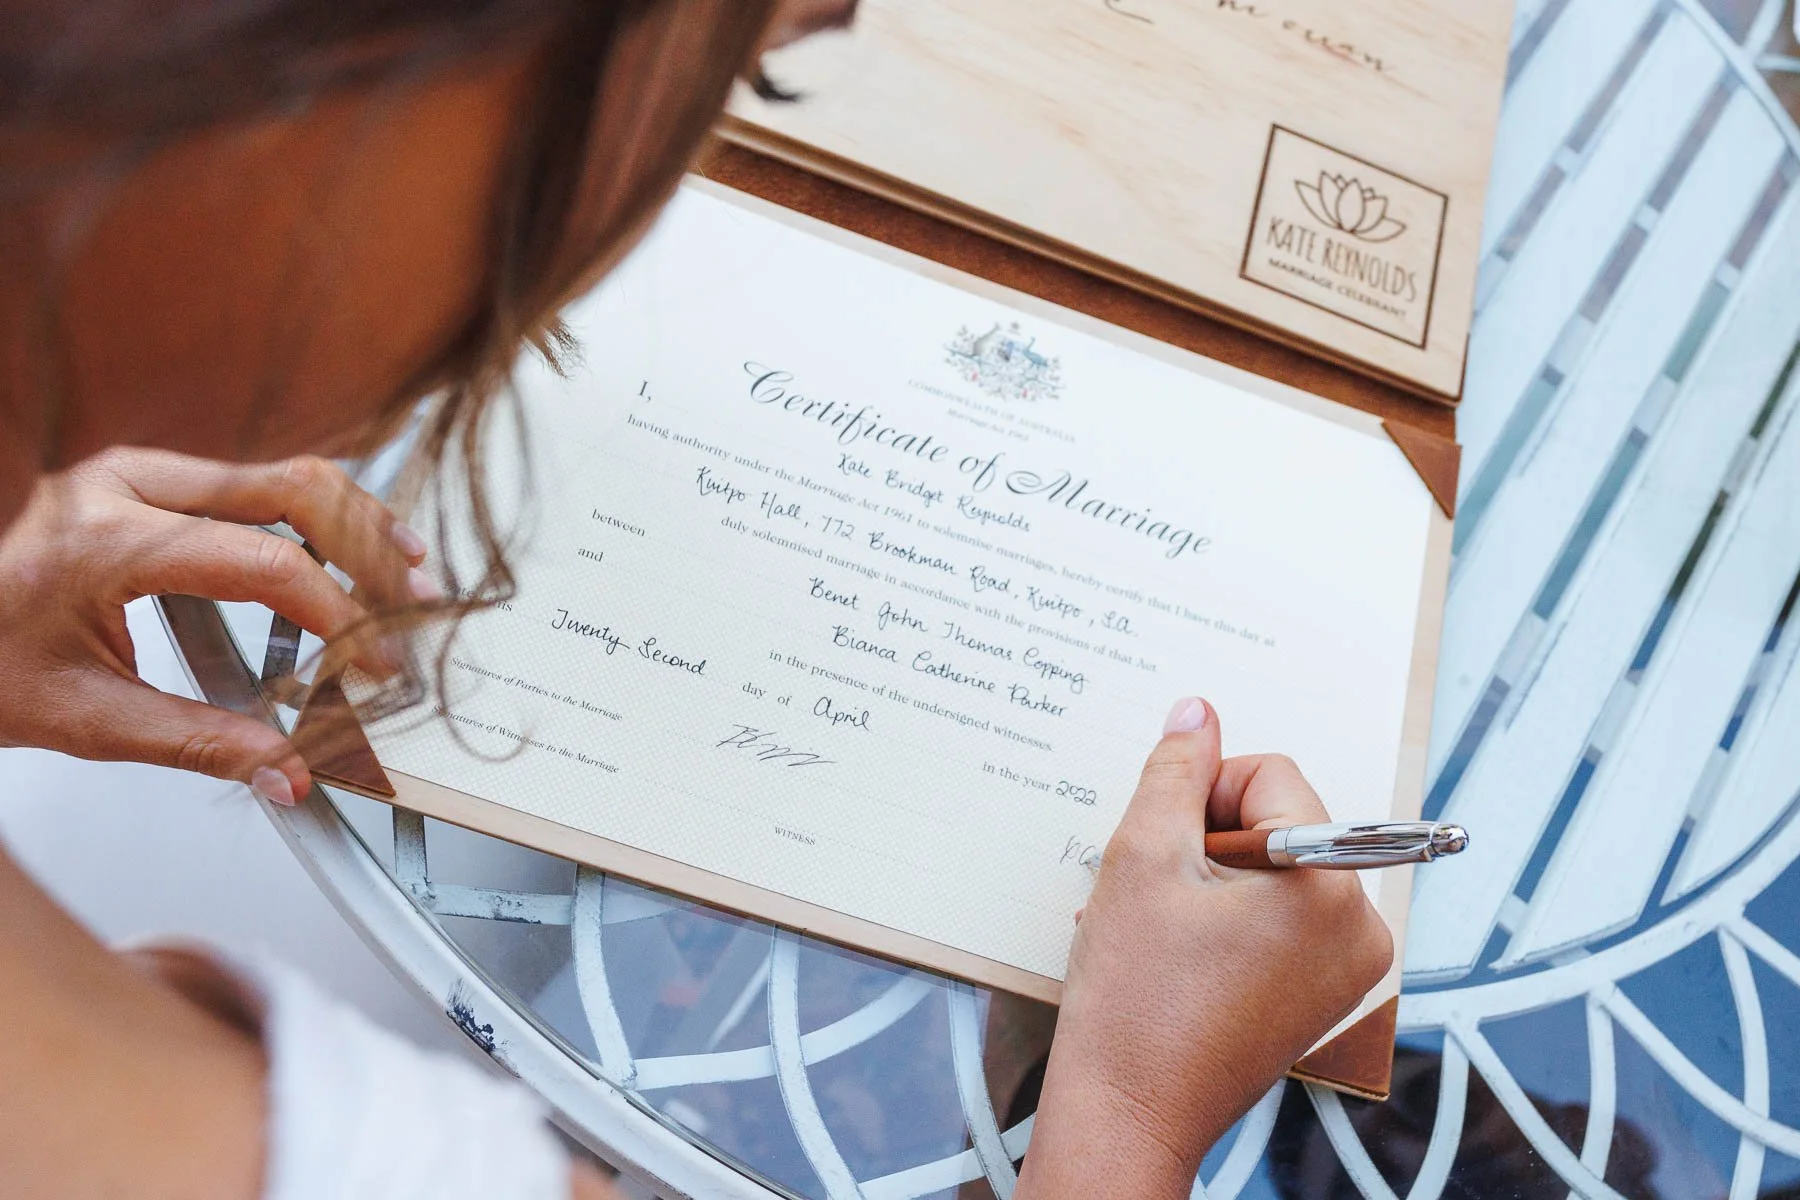 KATE REYNOLDS
MARRIAGE CELEBRANT
COMMONWEALTH OF AUSTRALIA
Marriage Act 1961
Certificate of Marriage
I,
Kate Bridget Reynolds
having authority under the Marriage Act 1961 to solemnise marriages, hereby certify that I have this day at
Kuitpo Hall, 772 Brookman Road, Kuitpo, SA.
duly solemnised marriage in accordance with the provisions of that Act
between Benet John Thomas Copping
and Bianca Catherine Parker
in the presence of the undersigned witnesses.
Twenty Second day of April in the year 2022
Signatures of Parties to the Marriage
Signatures of Witnesses to the Marriage
WITNESS